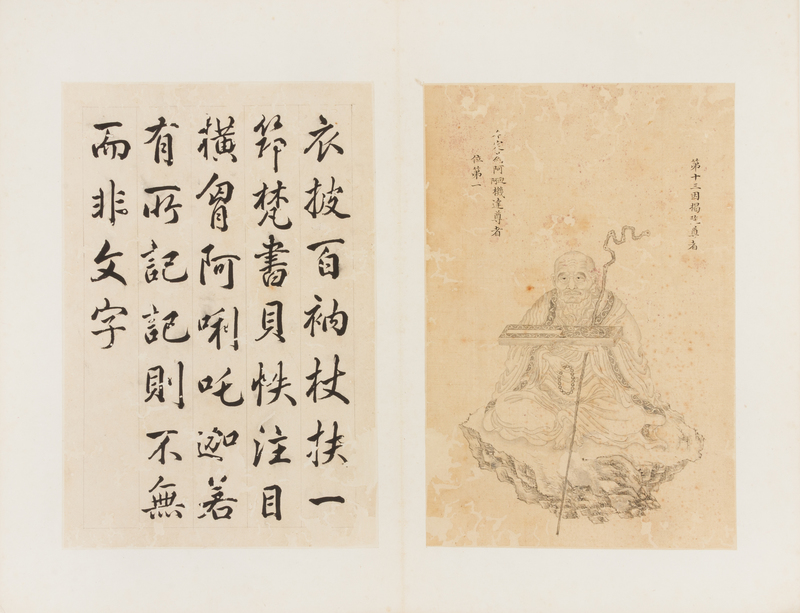 第十三因揭陀尊者
阿機達尊者
第一
衣披百衲杖扶一
筇梵書貝帙注目
橫胷阿唎吒迦若
有所記記則不無
而非文字